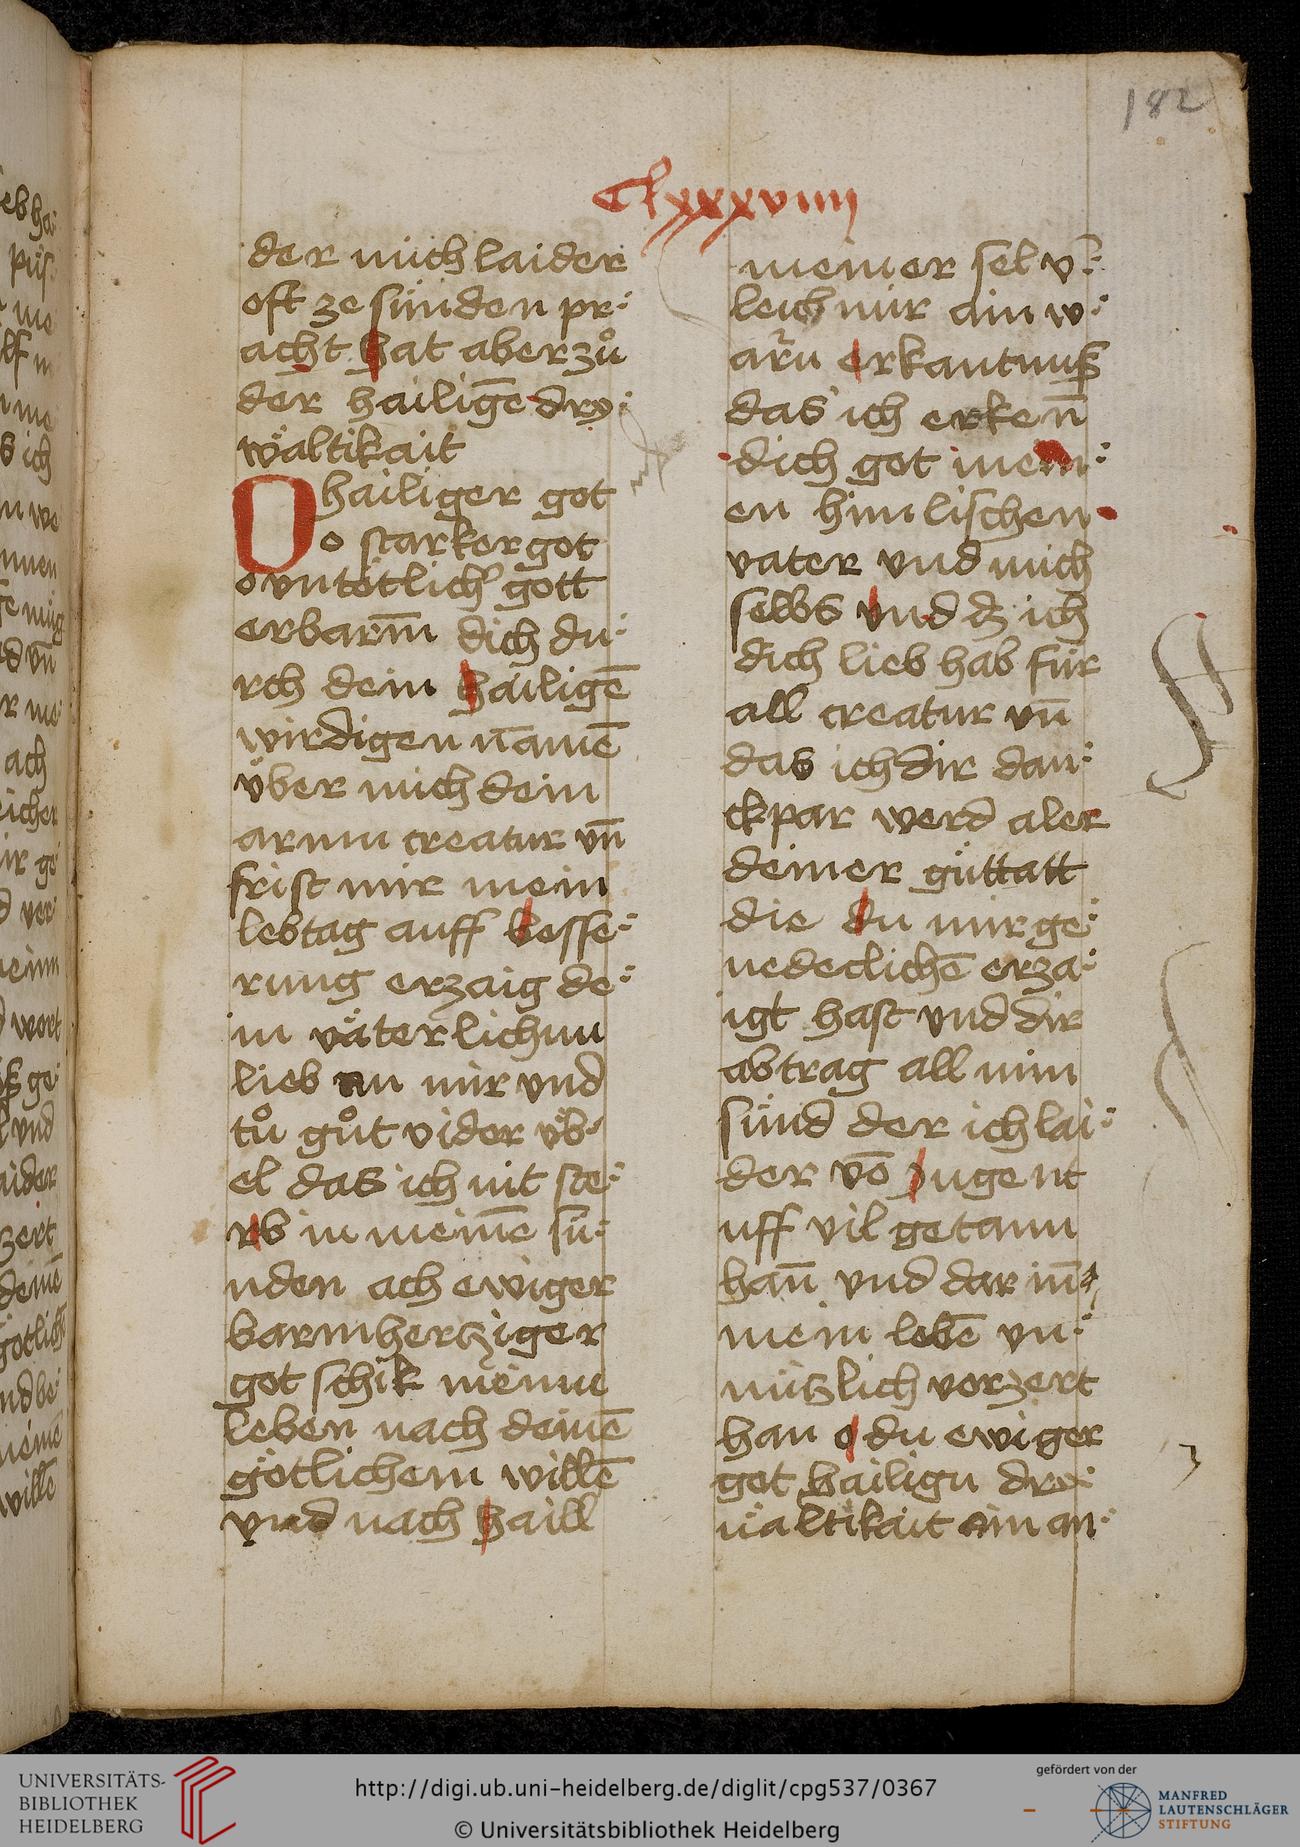 182
Clxxxviiij
der mich laider
oft ze sünden pr:
acht hat aber zuͦ
der hailigē dry:
wältikait
O hailiger got
o starker got
o vntötlichʼ gott
erbarm̄ dich du:
rch dein hailigē
wirdigen namē
über mich dein
armu creatur vn̄
frist mir mein
lebtag auff besse:
rung erzaig de:
in väterlichnu
lieb an mir und
tuͦ guͦt vider vb:
el das ich nit ste:
rb in meinē sü:
nden ach ewiger
barmhertziger
got schik meinu
leben nach deinē
götlichem willē
vnd nach haill
meiner sel vn̄:
leich mir ain w:
aru erkantnuß
das ich erken̄
dich got mein:
en himlischen
vater vnd mich
selbs vnd dz ich
dich lieb hab für
all creatur vn̄
das ich dir dan:
ckpar werd aler
deiner güttatt
die du mir ge:
nedeclichē erza:
igt hast vnd dir
abtrag all min
sünd der ich lai:
der vō jugent
uff vil getann
han̄ vnd dar in̄
mein lebē vn:
nützlich vorzert
han o du ewiger
got hailigu dry:
ualtikait ain an:
UNIVERSITÄTS-
BIBLIOTHEK
HEIDELBERG
http://digi.ub.uni-heidelberg.de/diglit/cpg537/0367
© Universitätsbibliothek Heidelberg
gefördert von der
MANFRED
LAUTENSCHLÄGER
STIFTUNG